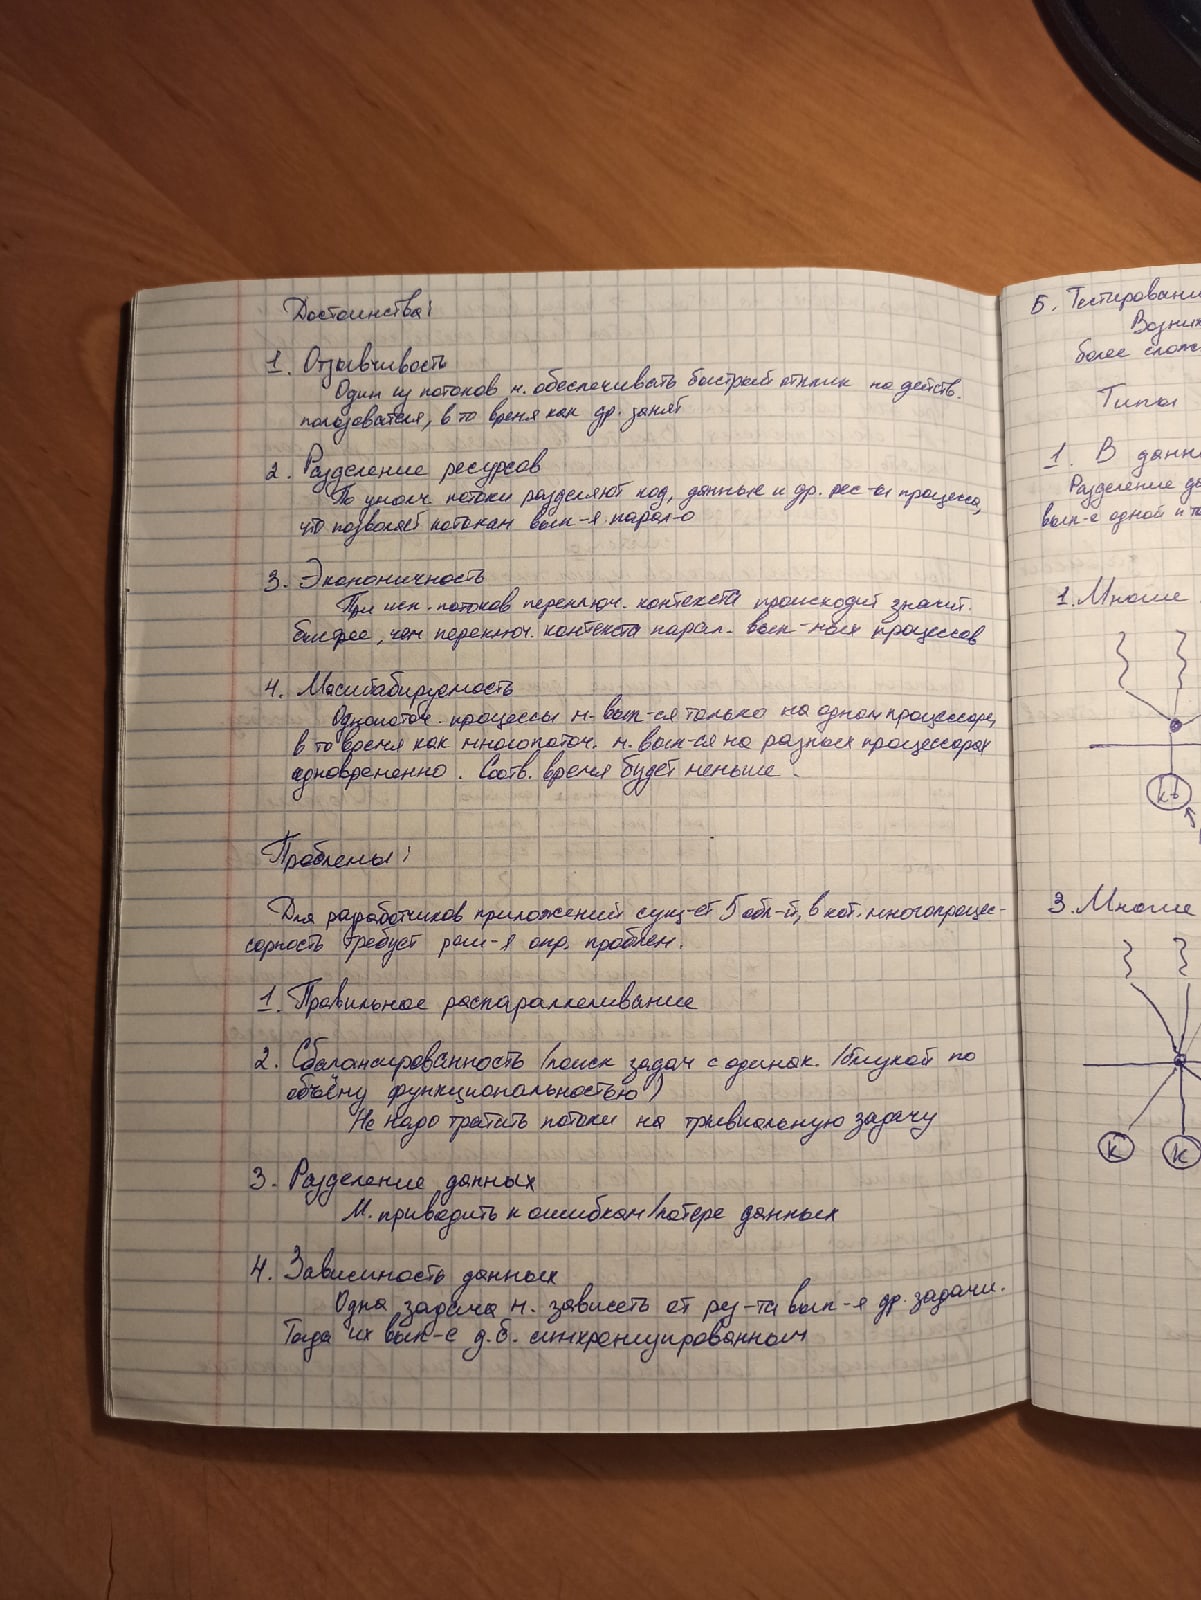 Достоинства:
1. Отзывчивость
Один из потоков м. обеспечивать быстрый отклик на действ.
пользователя, в то время как др. занят
2. Разделение ресурсов
По умолч. потоки разделяют код, данные и др. рес-ы процесса,
что позволяет потокам вып-я парал-о
3. Экономичность
При исп. потоков переключ. контекста происходит значит.
быстрее, чем переключ. контекста парал. вып-ных процессов
4. Масштабируемость
Однопоточ. процессы м. вып-ся только на одном процессоре,
в то время как многопоточ. м. вып-ся на разных процессорах
одновременно. Соотв. время будет меньше.
Проблемы:
Для разработчиков приложений сущ-ет 5 обл-й, в кот. многопроцес-
сорность требует реш-я опр. проблем.
1. Правильное распараллеливание
2. Сбалансированность (поиск задач с одинак. /близкой по
объёму функциональностью)
Не надо тратить потоки на тривиальную задачу
3. Разделение данных
М. приводить к ошибкам/потере данных
4. Зависимость данных
Одна задача м. зависеть от рез-та вып-я др. задачи.
Тогда их вып-е д.б. синхронизированным
5. Тестировани
Возник
более слож
Типы
1. В данн
Разделение да
вып-е одной и то
1. Многие
kt
3. Многие
k k